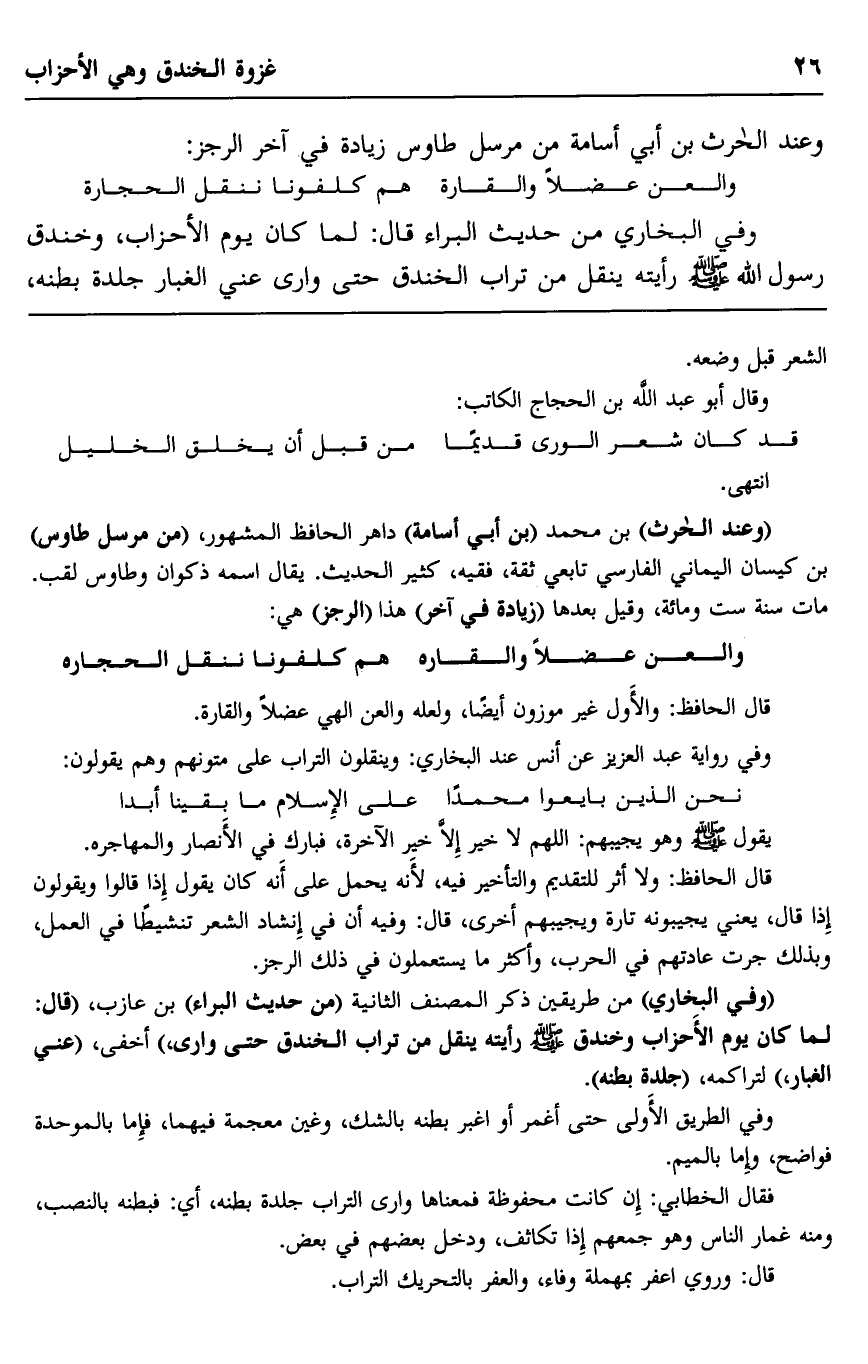 ٢٦ غزوة الخندق وهي الأحزاب
وعند الحٰرث بن أبي أسامة من مرسل طاوس زيادة في آخر الرجز:
والعن عضلاً والقارة هم كلفونا ننقل الحجارة
وفي البخاري من حديث البراء قال: لما كان يوم الأحزاب، وخندق
رسول الله ﷺ رأيته ينقل من تراب الخندق حتى وارى عني الغبار جلدة بطنه،
الشعر قبل وضعه.
وقال أبو عبد اللَّه بن الحجاج الكاتب:
قد كان شعر الورى قديمًا من قبل أن يخلق الخليل
انتهى.
(وعند الحٰرث) بن محمد (بن أبي أسامة) داهر الحافظ المشهور، (من مرسل طاوس)
بن كيسان اليماني الفارسي تابعي ثقة، فقيه، كثير الحديث. يقال اسمه ذكوان وطاوس لقب.
مات سنة ست ومائة، وقيل بعدها (زيادة في آخر) هذا (الرجز) هي:
والعن عضلاً والقاره هم كلفونا ننقل الحجاره
قال الحافظ: والأَول غير موزون أيضًا، ولعله والعن الهي عضلاً والقارة.
وفي رواية عبد العزيز عن أنس عند البخاري: وينقلون التراب على متونهم وهم يقولون:
نحن الذين بايعوا محمدًا على الإِسلام ما بقينا أبدا
يقول ﷺ وهو يجيبهم: اللهم لا خير إِلاَّ خير الآخرة، فبارك في الأَنصار والمهاجره.
قال الحافظ: ولا أثر للتقديم والتأخير فيه، لأَنه يحمل على أَنه كان يقول إِذا قالوا ويقولون
إِذا قال، يعني يجيبونه تارة ويجيبهم أخرى، قال: وفيه أن في إِنشاد الشعر تنشيطًا في العمل،
وبذلك جرت عادتهم في الحرب، وأكثر ما يستعملون في ذلك الرجز.
(وفي البخاري) من طريقين ذكر المصنف الثانية (من حديث البراء) بن عازب، (قال:
لما كان يوم الأَحزاب وخندق ﷺ رأيته ينقل من تراب الخندق حتى وارى،) أخفى، (عني
الغبار،) لتراكمه، (جلدة بطنه).
وفي الطريق الأَولى حتى أغمر أو اغبر بطنه بالشك، وغين معجمة فيهما، فإِما بالموحدة
فواضح، وإِما بالميم.
فقال الخطابي: إِن كانت محفوظة فمعناها وارى التراب جلدة بطنه، أي: فبطنه بالنصب،
ومنه غمار الناس وهو جمعهم إِذا تكاثف، ودخل بعضهم في بعض.
قال: وروي اعفر بمهملة وفاء، والعفر بالتحريك التراب.